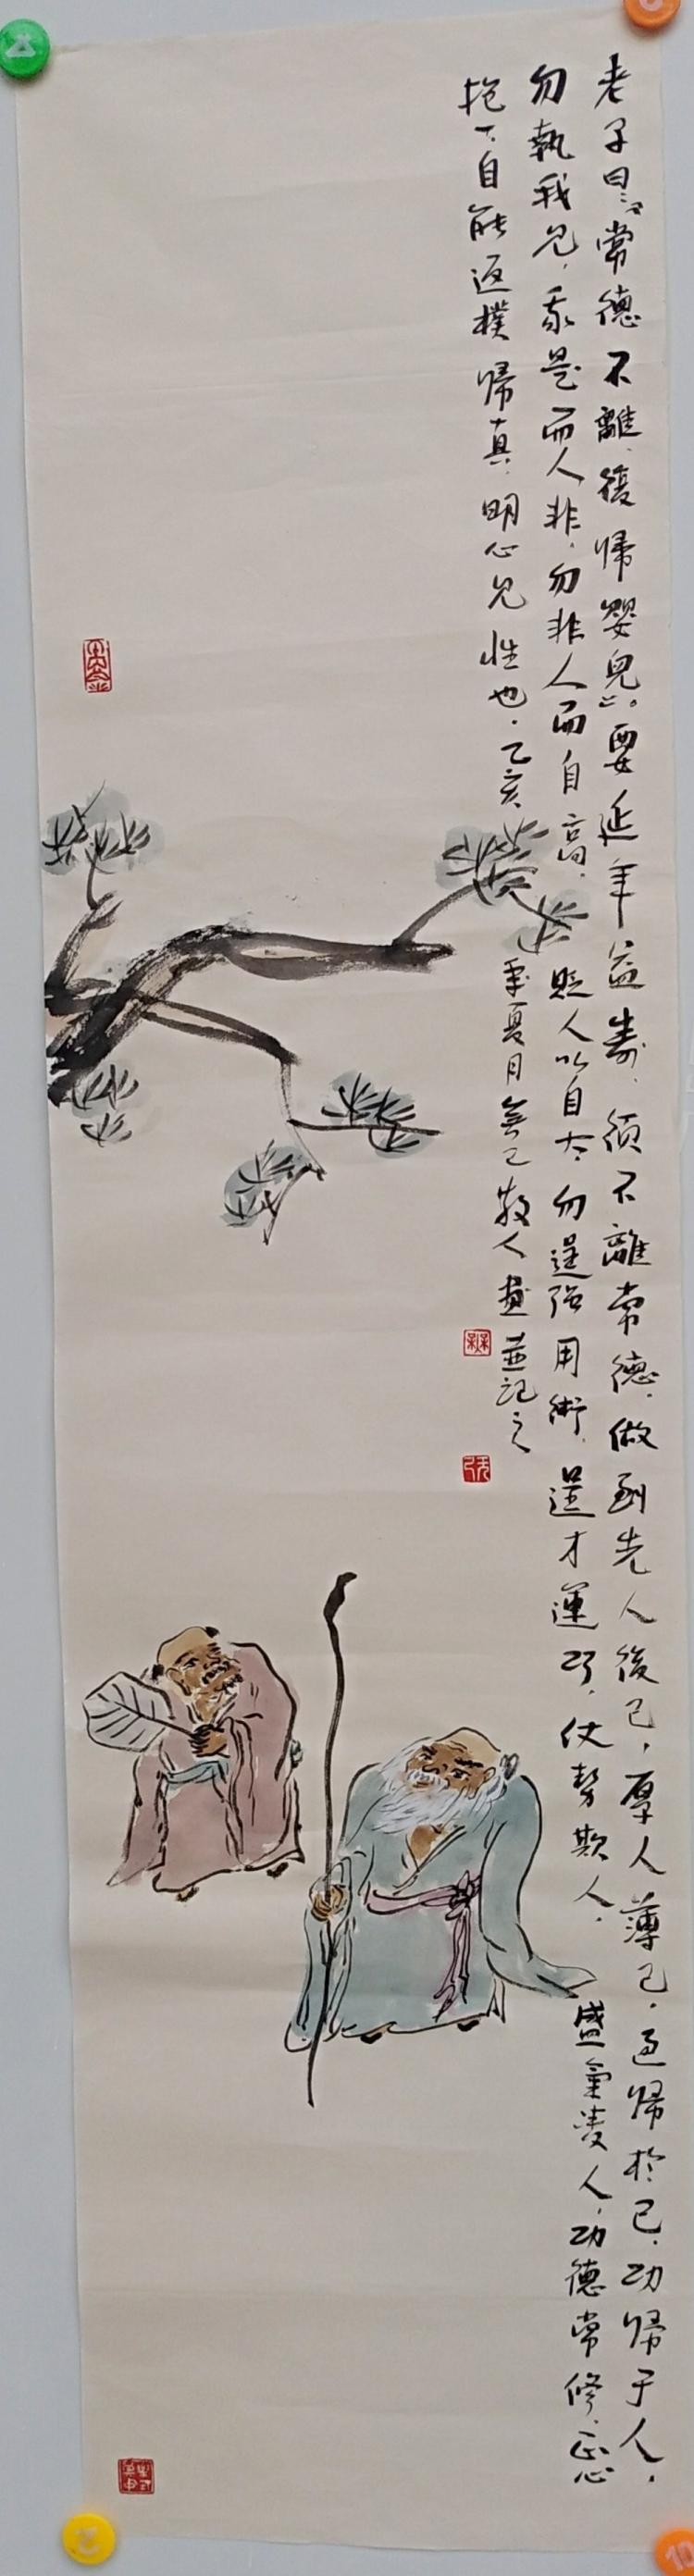 老子曰:“常德不離,復歸嬰兒”。要延年益壽,須不離常德,做到先人後己,厚人薄己,過歸於己,功歸于人,
勿執我見,我是而人非,勿非人而自高,貶人以自大,勿逞强用術,逞才運巧,仗勢欺人,盛氣凌人,功德常修,正心
抱一,自能返樸歸真,明心見性也.乙亥年夏月無己散人畫並記之